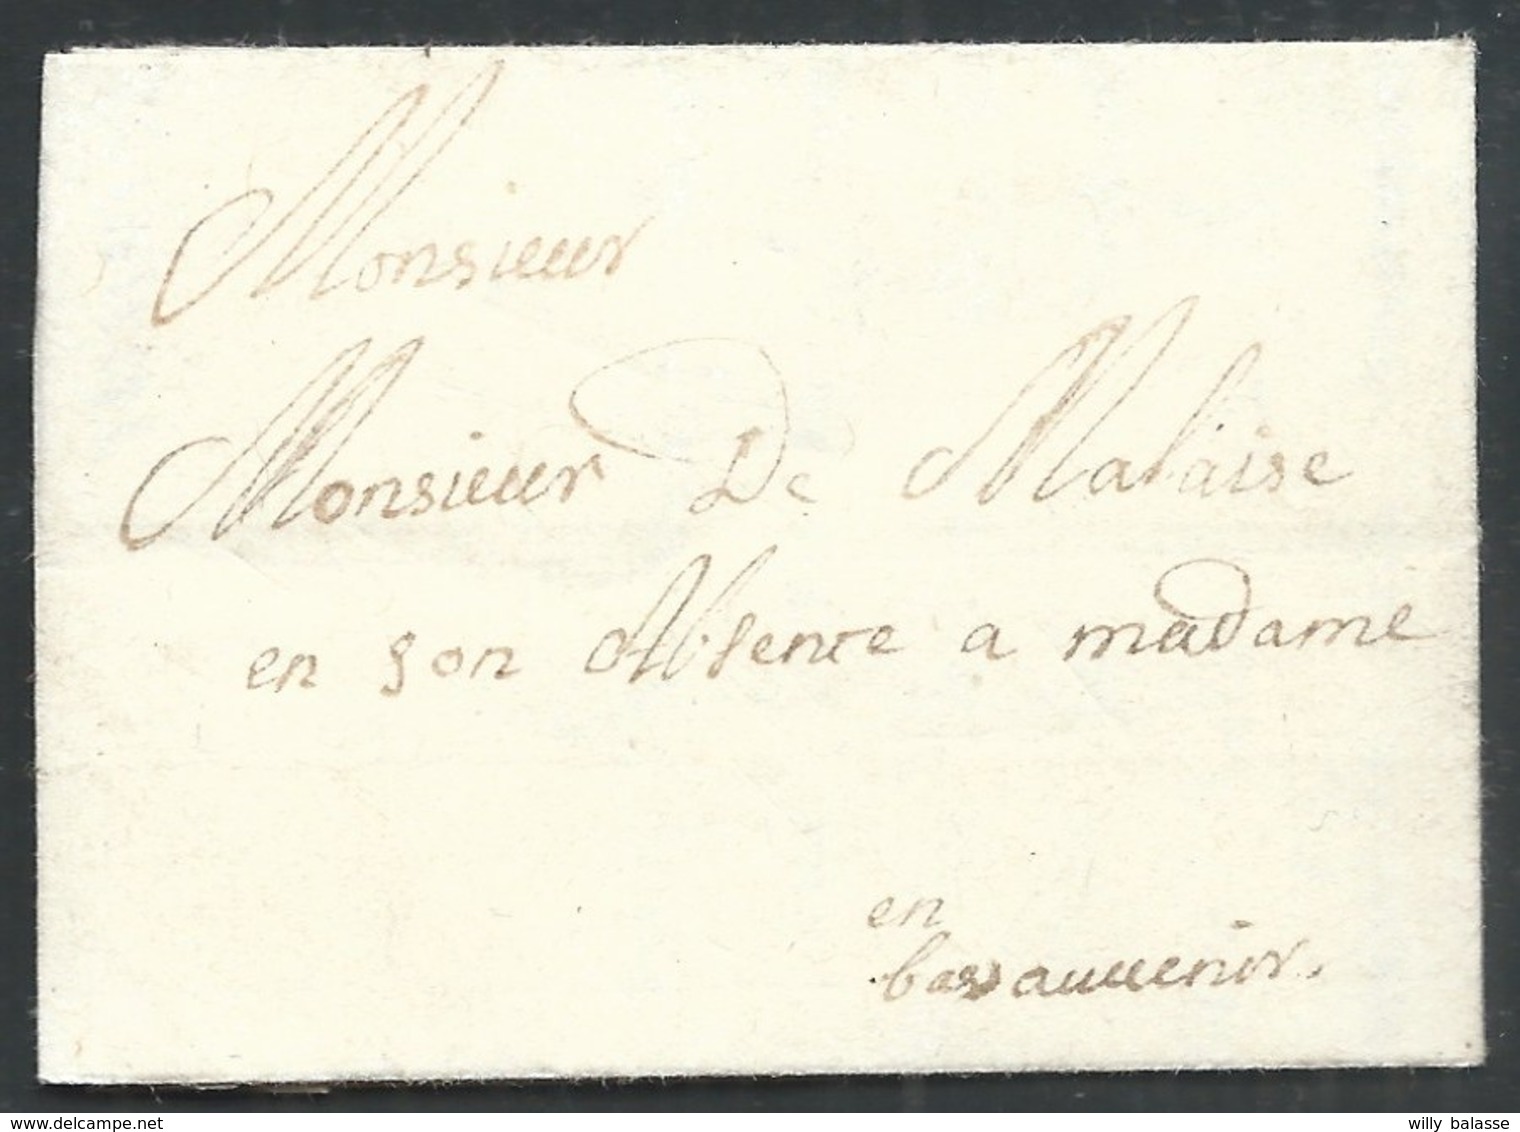 Monsieur
Monsieur De Malaise
en son Absence a madame
en
bassauvenir.
willy balasse